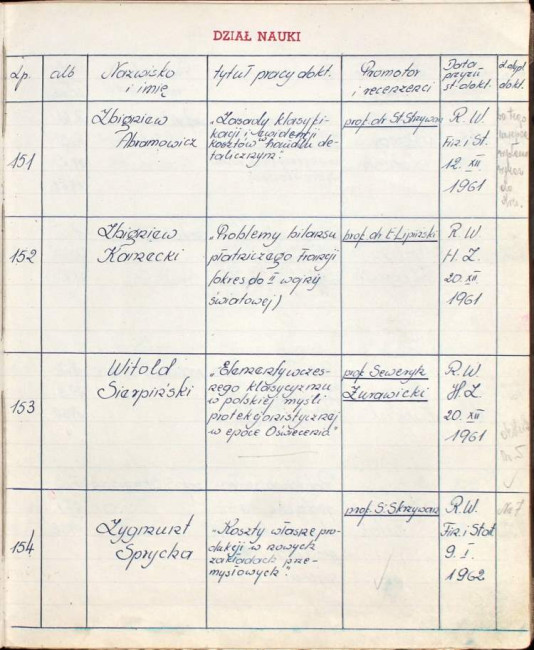 DZIAŁ NAUKI
Lp.
alb
Nazwisko
i imię
tytuł pracy dokt.
Promotor
i recenzenci
Data
przyzn.
st. dokt.
dokt.
151
Zbigniew
Abramowicz
„Zasady klasyfi-
kacji i ewidencji
kosztów handlu de-
talicznym”.
prof. dr St. Skrzywan
R.W.
Fin. i St.
12. XII.
1961
152
Zbigniew
Karzecki
„Problemy bilansu
płatniczego Francji
(okres do II wojny
światowej)
prof. dr E. Lipiński
R.W.
H.Z.
20. XII.
1961
153
Witold
Sierpiński
„Elementy wczes-
nego klasycyzmu
w polskiej myśli
protekcjonistycznej
w epoce Oświecenia”
prof. Seweryn
Żurawicki
R.W.
H.Z.
20. XII
1961
154
Zygmunt
Sprycka
„Koszty własne pro-
dukcji w nowych
zakładach prze-
mysłowych”.
prof. S. Skrzywan
R.W.
Fin. i Stat.
9. I.
1962